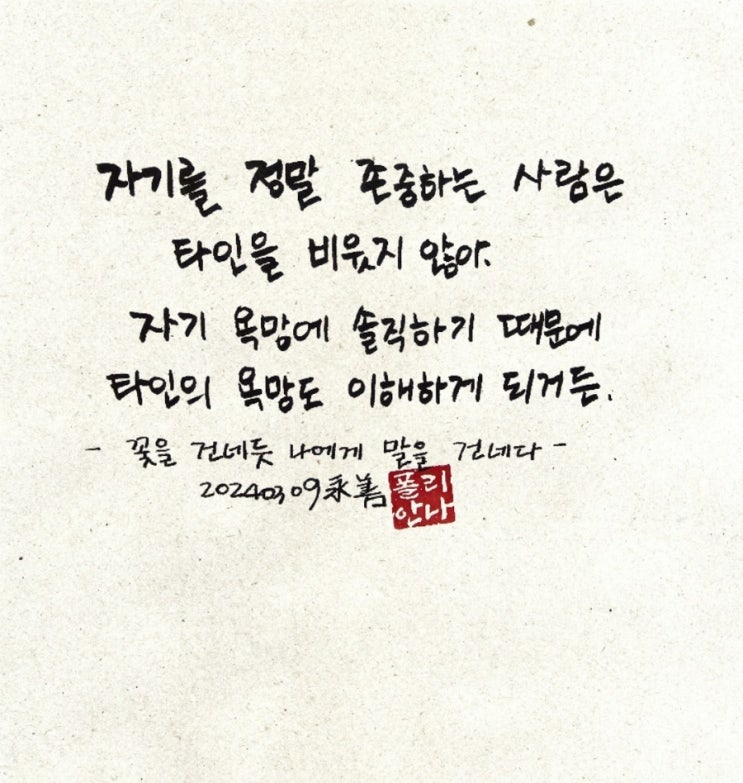 자기를 정말 존중하는 사람은
타인을 비웃지 않아.
자기 욕망에 솔직하기 때문에
타인의 욕망도 이해하게 되거든.
- 꽃을 건네듯 나에게 말을 건네다 -
20240309永善
폴리
안나